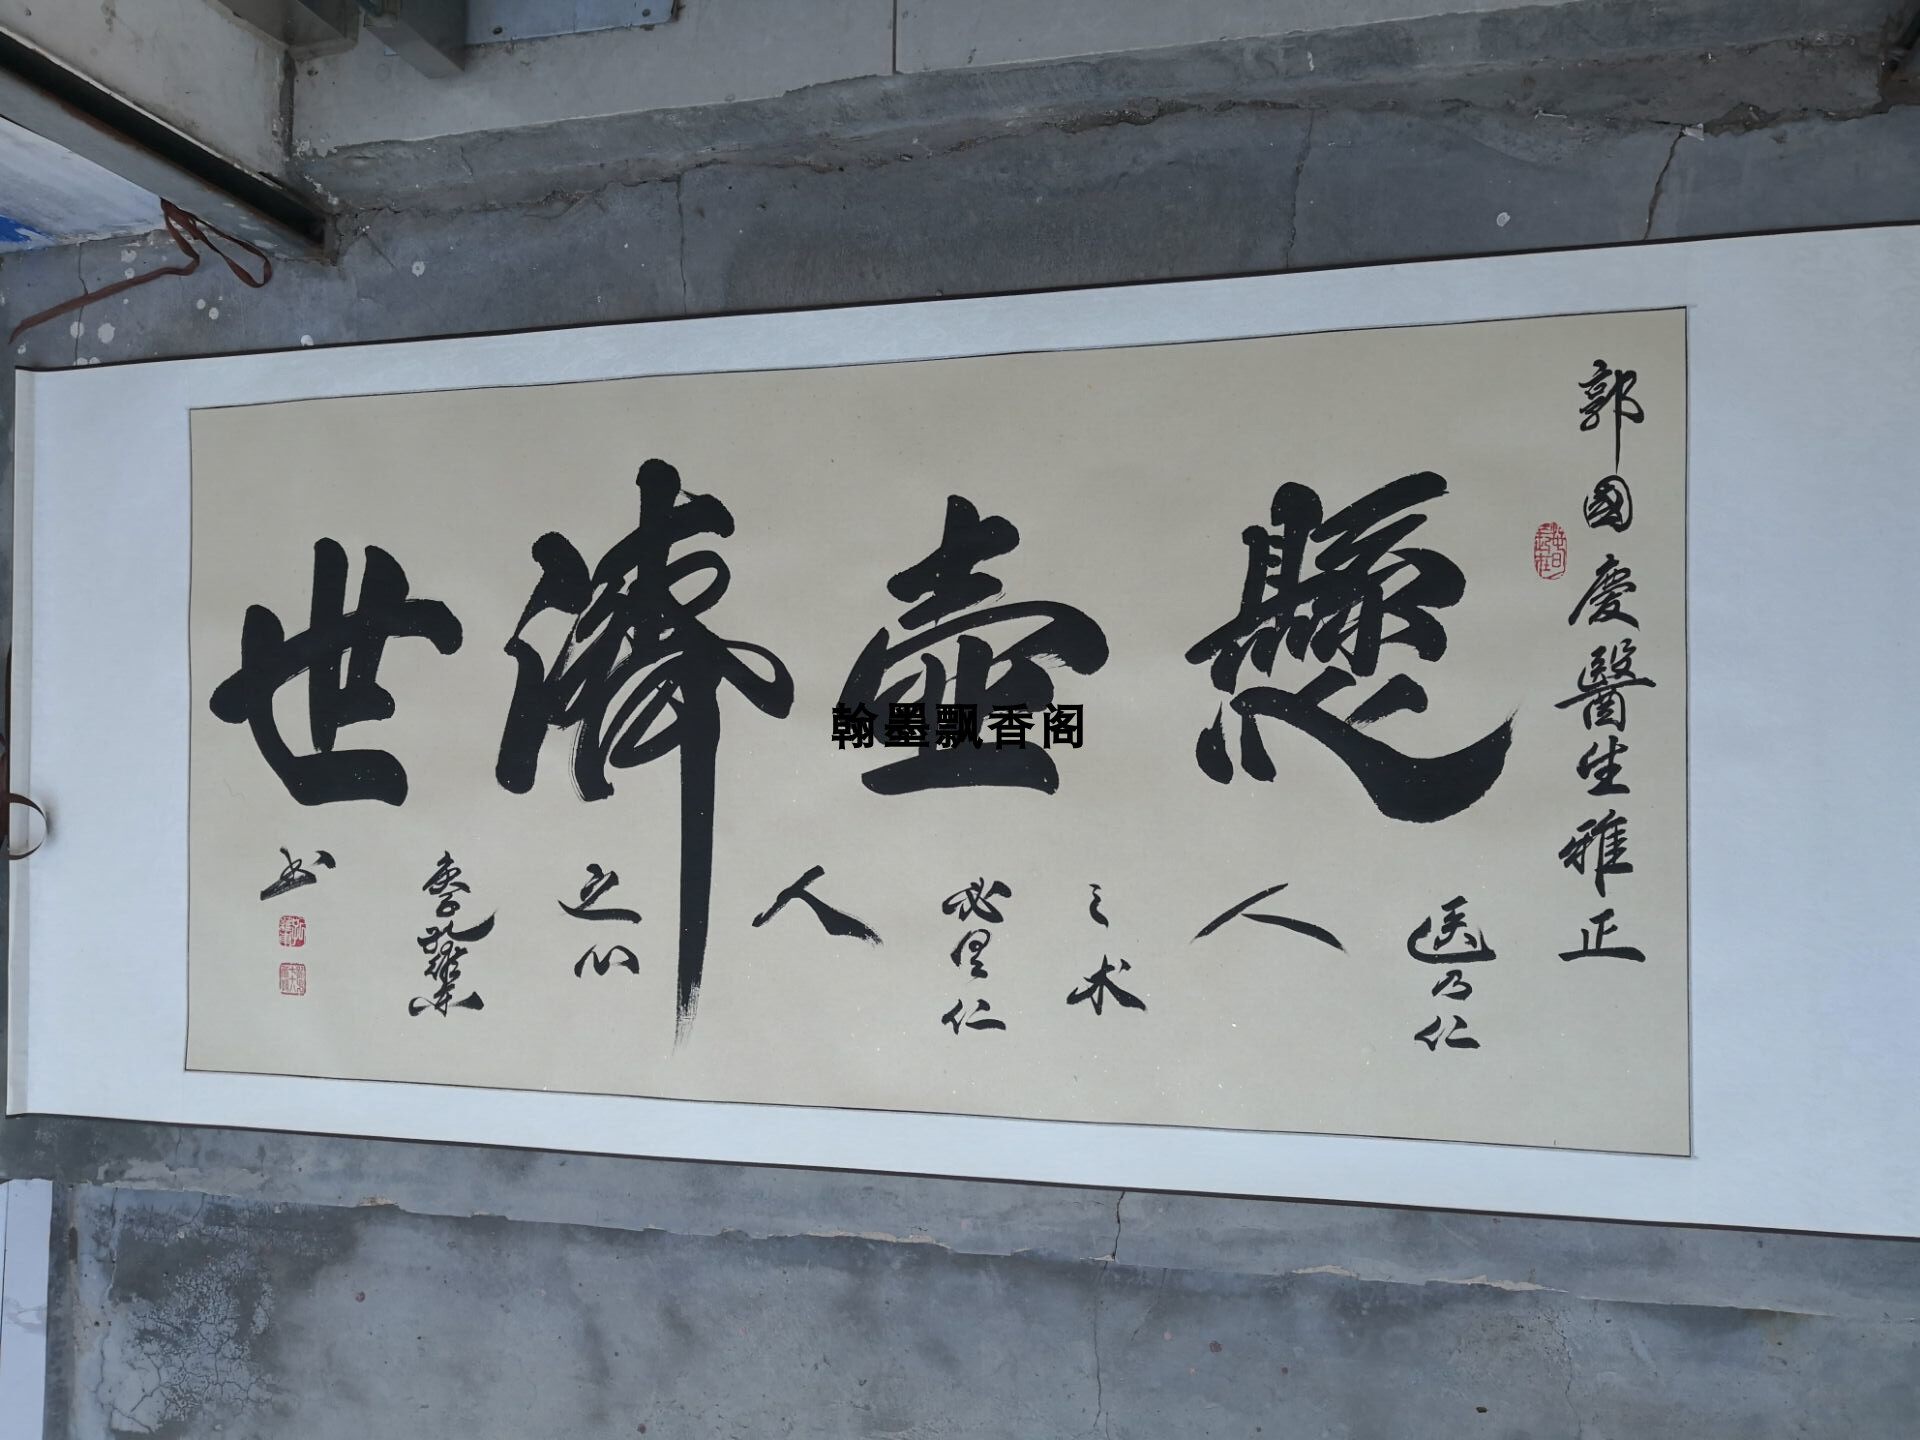 郭國慶醫生雅正
懸壺濟世
医乃仁
人
之术
必具仁
人
之心
书
翰墨飘香阁